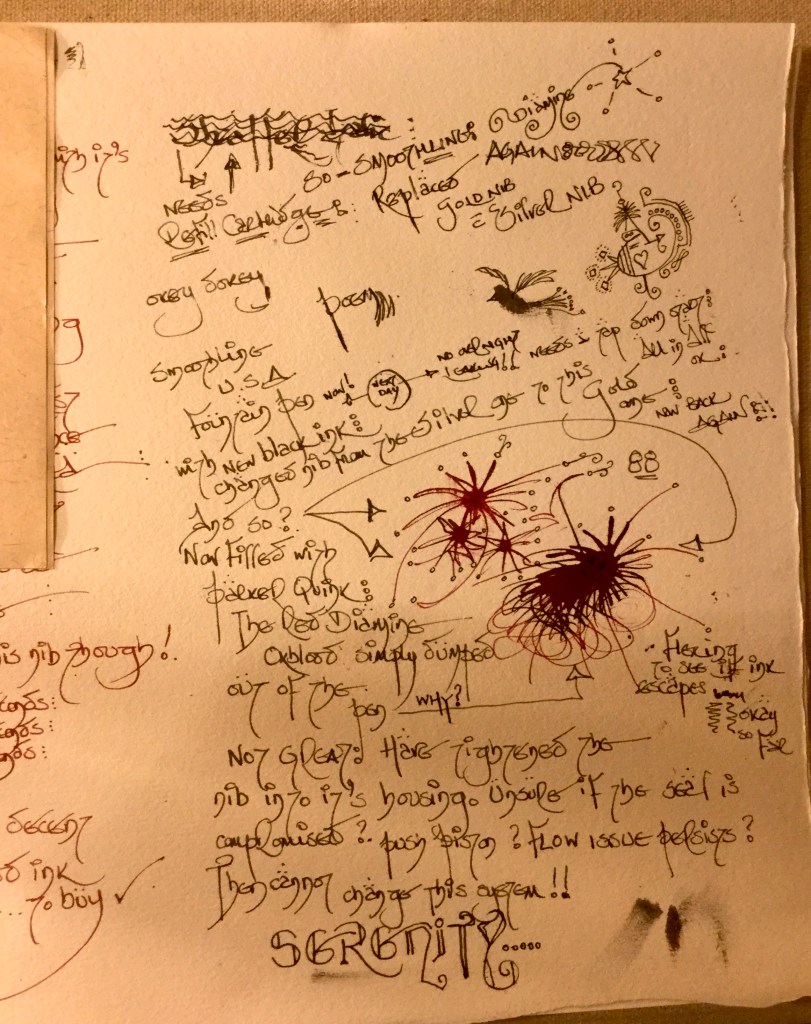 SO-SMOOTHLING: DIAMINE
NEEDS
REfill CARTRIDGE: REPLACED AGAIN
GOLD NIB
= Silver NIB?
okey dokey
poem
SMOOTHLINE
U.S.A
Fountain pen NOW! NEXT DAY NO OVERNIGHT LEAKING!! NEEDS 1 TOP DOWN START:
All in All OK:
with new black ink:
changed nib from the Silver one to this Gold one:
NOW BACK AGAIN
88
And so?
Now Filled with
Parker Quink:
The Red Diamine
Oxblood simply dumped
out of the
pen WHY?
Flexing
to see if ink
escapes
okay
so
Far
Not Great: Have tightened the
nib into it's housing. Unsure if the seal is
compromised? push piston? Flow issue persists?
Then cannot change this system!!
SERENITY.....
with it's
is nib though!
decent
ink
... to buy ✓